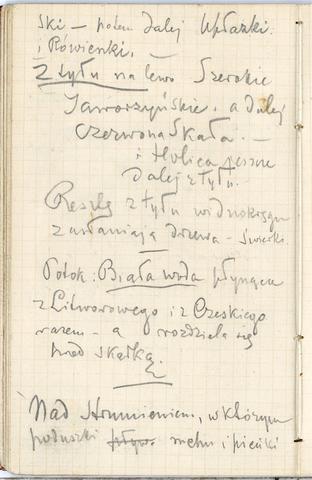 ski — potem dalej Upłazki
i Rówienki. —
Z tyłu na lewo Szerokie
Jaworzyńskie. a dalej
Czerwona Skała. —
i Holica jeszcze
dalej z tyłu.
Resztę z tyłu widnokręgu
zasłaniają drzewa — świerki.
Potok: Biała woda płynąca
z Litworowego i z Czeskiego
razem — a rozdziela się
pod skałką.
Nad strumieniem, w którym
poduszki pływ. mchu i pieńki